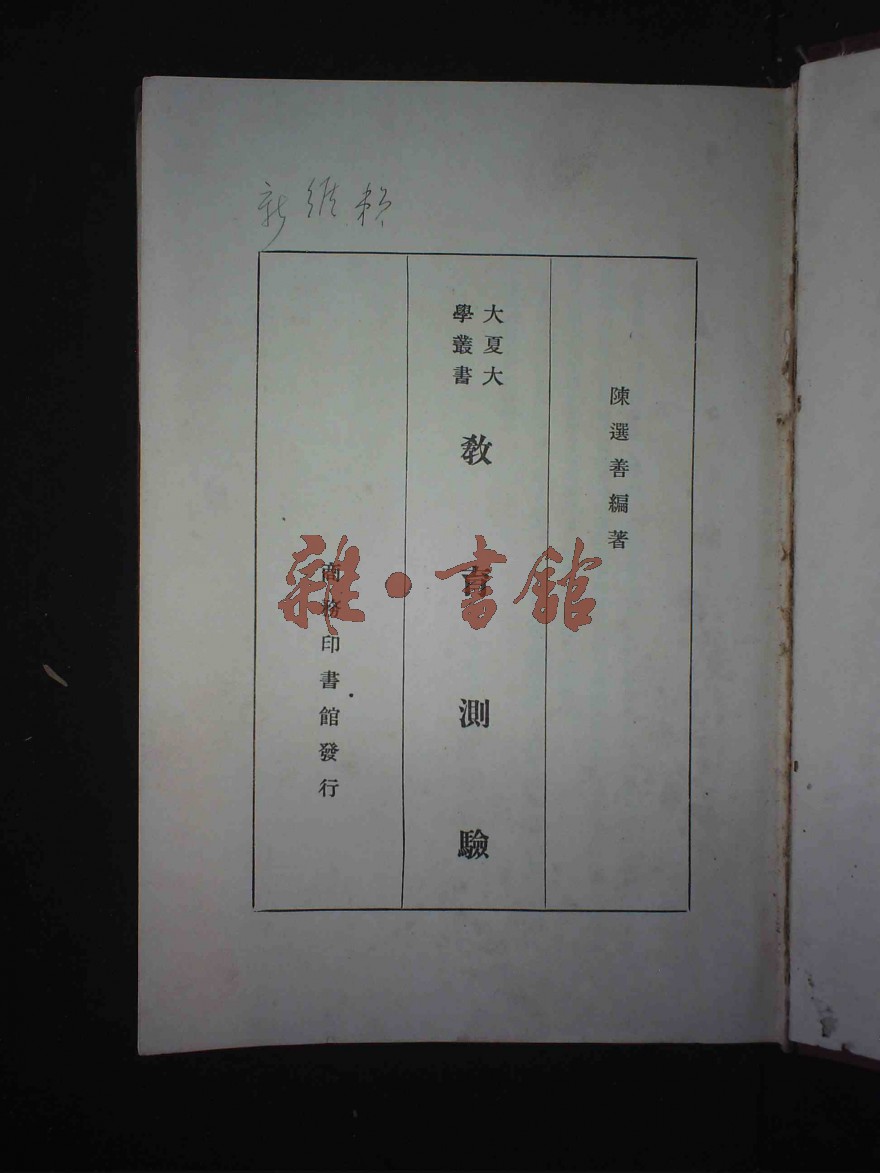 陳選善編著
大夏大
學叢書
教育測驗
商務印書館發行
雜·書館